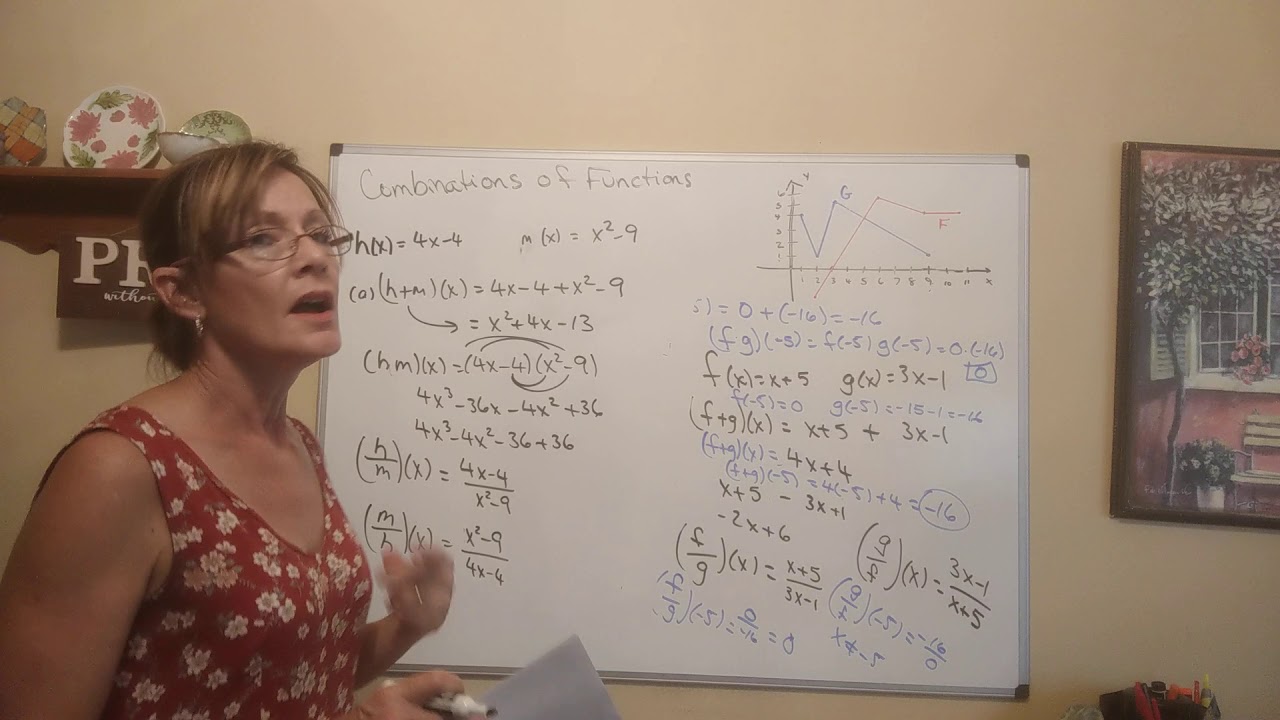 Combinations of Functions
h(x) = 4x-4 m(x) = x²-9
(a) (h+m)(x) = 4x-4+x²-9
= x²+4x-13
(hm)(x) = (4x-4)(x²-9)
4x³-36x-4x²+36
4x³-4x²-36+36
(h/m)(x) = 4x-4/x²-9
(m/h)(x) = x²-9/4x-4
y
6
5
4
3
2
1
G
F
1 2 3 4 5 6 7 8 9 10 11 x
5) = 0+(-16) = -16
(f g)(-5) = f(-5) g(-5) = 0·(-16)
0
f(x) = x+5 g(x) = 3x-1
f(-5) = 0 g(-5) = -15-1 = -16
(f+g)(x) = x+5 + 3x-1
(f+g)(x) = 4x+4
(f+g)(-5) = 4(-5)+4 = -16
x+5 - 3x+1
-2x+6
(f/g)(x) = x+5/3x-1
(g/f)(x) = 3x-1/x+5
(f/g)(-5) = 0/-16 = 0
(g/f)(-5) = -16/0
x≠-5
PR
witho